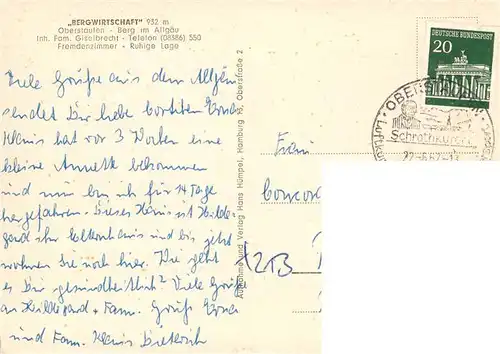 „BERGWIRTSCHAFT" 932 m
Oberstaufen - Berg im Allgäu
Inh. Fam. Giselbrecht - Telefon (08386) 550
Fremdenzimmer - Ruhige Lage
Viele Grüße aus dem Allgäu
sendet Dir liebe Erna
Klaus hat vor 3 Wochen eine
kleine Annette bekommen
und nun bin ich für 14 Tage
hergefahren. Dieses Haus ist Hilde-
gard ihr Elternhaus und bis jetzt
wohnen sie noch hier. Wie geht
es Dir gesundheitlich? Viele Grüße
an Hildegard + Fam. Gruß Erna
und Fam. Klaus Dieterich
Aufnahme und Verlag Hans Hümpel, Hamburg 76, Oberstraße 2
Frau
213
DEUTSCHE BUNDESPOST
20
OBERS
Schrothkurort
Luftku